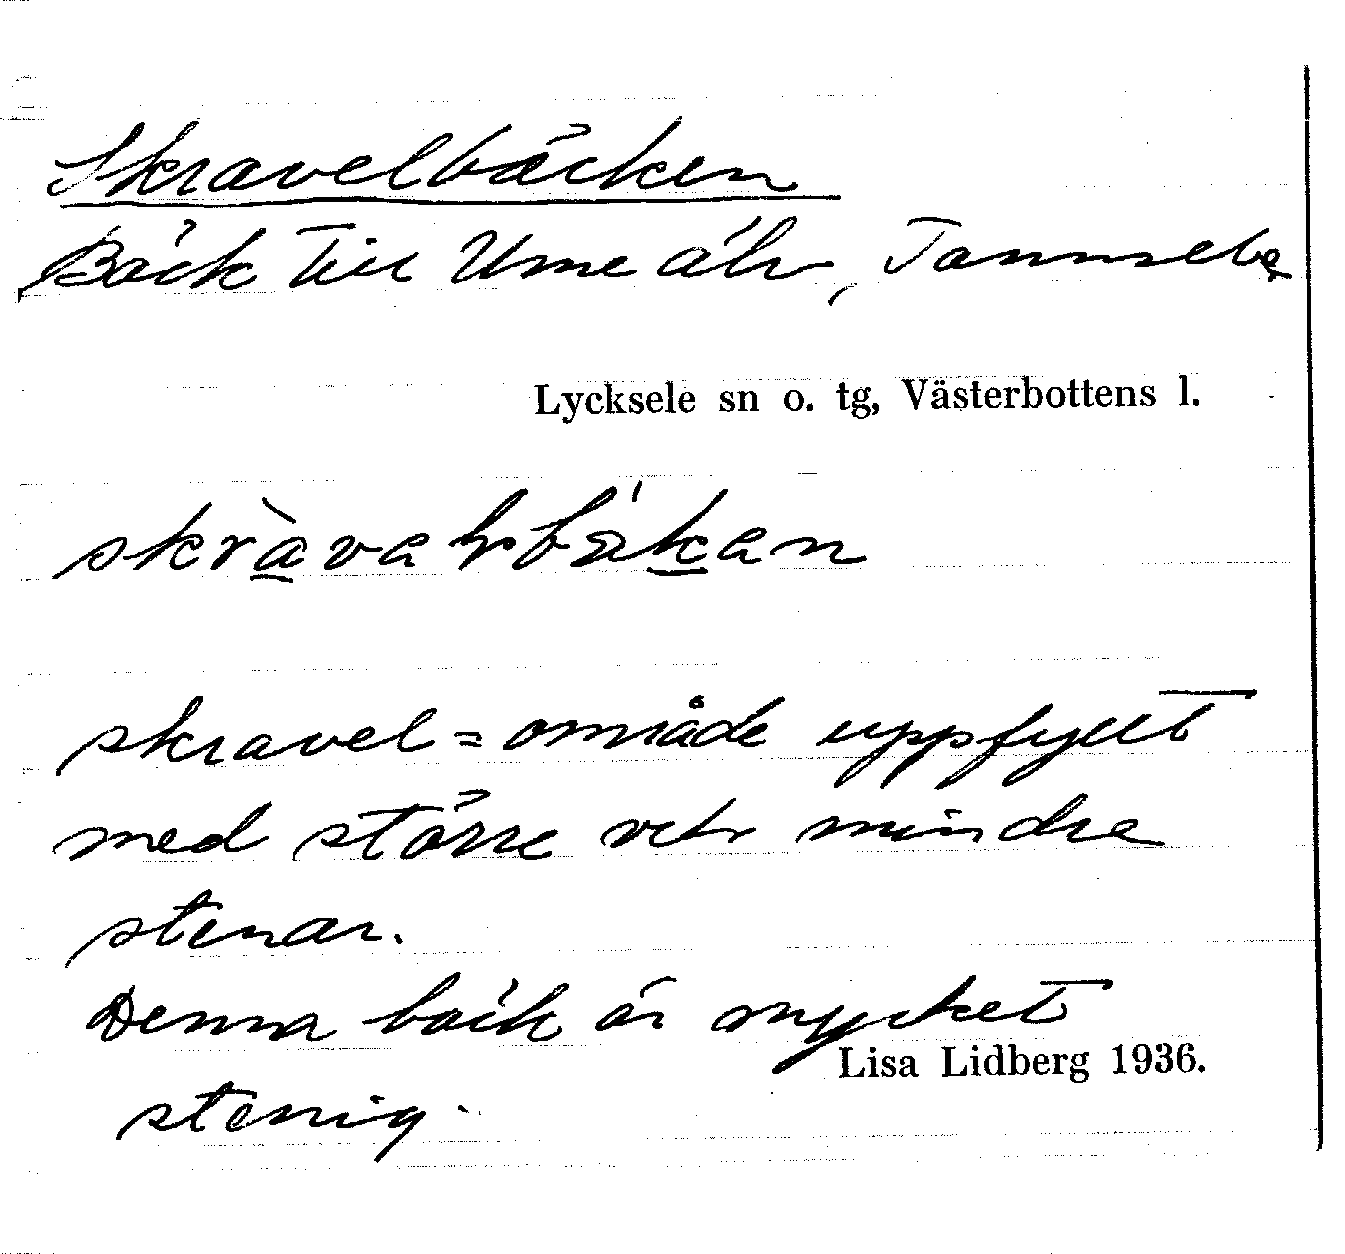 Skravelbäcken
Bäck till Ume älv, Tannsele
Lycksele sn o. tg, Västerbottens l.
skravel = område uppfyllt
med större och mindre
stenar.
Denna bäck är mycket
Lisa Lidberg 1936.
stenig.